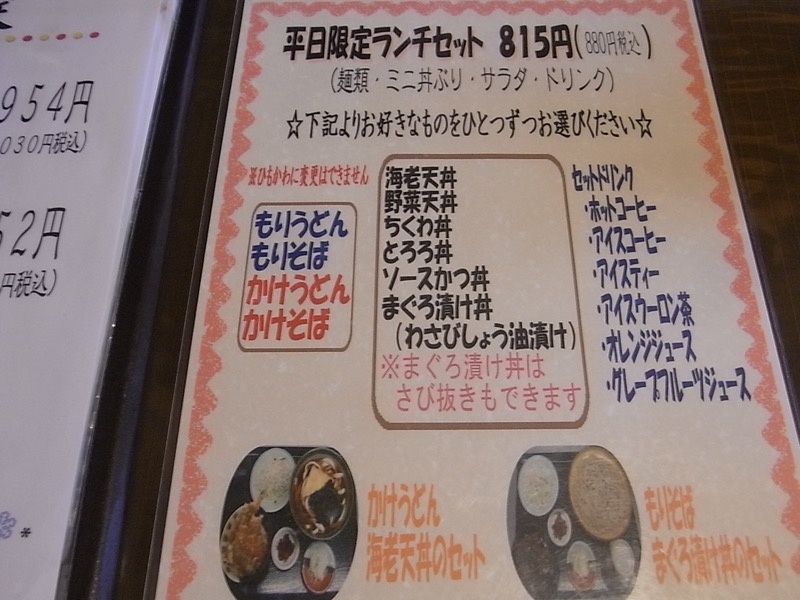 954円
030円税込)
52円
円税込)
*
平日限定ランチセット 815円(880円税込)
(麺類・ミニ丼ぶり・サラダ・ドリンク)
☆下記よりお好きなものをひとつずつお選びください☆
※ひもかわに変更はできません
もりうどん
もりそば
かけうどん
かけそば
海老天丼
野菜天丼
ちくわ丼
とろろ丼
ソースかつ丼
まぐろ漬け丼
(わさびしょう油漬け)
※まぐろ漬け丼は
さび抜きもできます
セットドリンク
・ホットコーヒー
・アイスコーヒー
・アイスティー
・アイスウーロン茶
・オレンジジュース
・グレープフルーツジュース
かけうどん
海老天丼のセット
もりそば
まぐろ漬け丼のセット